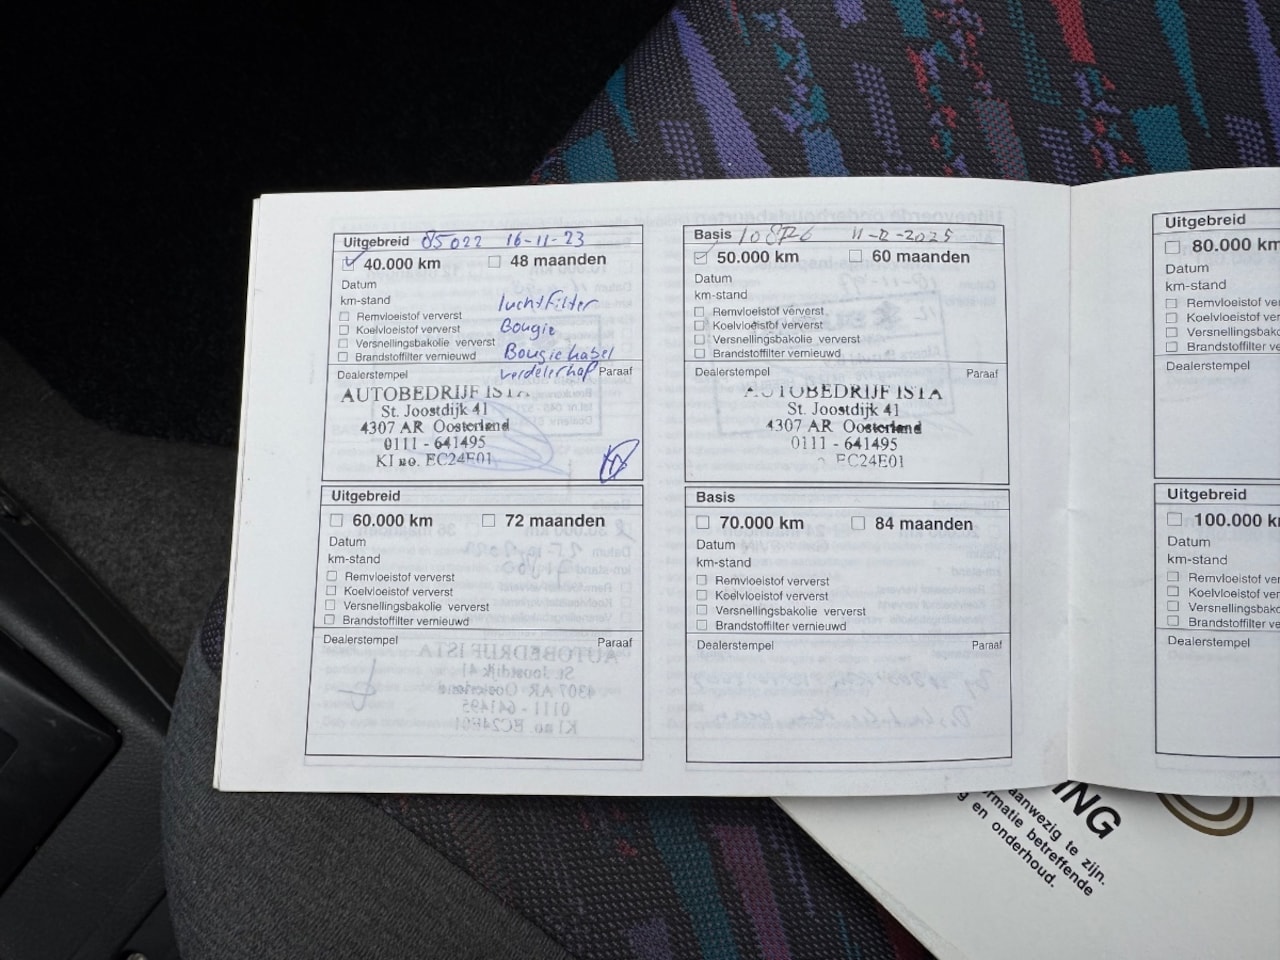 Uitgebreid 85022 16-11-23
40.000 km 48 maanden
Datum
km-stand luchtfilter
Remvloeistof ververst
Koelvloeistof ververst Bougie
Versnellingsbakolie ververst
Brandstoffilter vernieuwd Bougiekabel
Dealerstempel verdelerkap Paraaf
AUTOBEDRIJF ISTA
St. Joostdijk 41
4307 AR Oosterland
0111 - 641495
KI no. EC24E01
Basis 11-12-2025
50.000 km 60 maanden
Datum
km-stand
Remvloeistof ververst
Koelvloeistof ververst
Versnellingsbakolie ververst
Brandstoffilter vernieuwd
Dealerstempel Paraaf
AUTOBEDRIJF ISTA
St. Joostdijk 41
4307 AR Oosterland
0111 - 641495
EC24E01
Uitgebreid
60.000 km 72 maanden
Datum
km-stand
Remvloeistof ververst
Koelvloeistof ververst
Versnellingsbakolie ververst
Brandstoffilter vernieuwd
Dealerstempel Paraaf
Basis
70.000 km 84 maanden
Datum
km-stand
Remvloeistof ververst
Koelvloeistof ververst
Versnellingsbakolie ververst
Brandstoffilter vernieuwd
Dealerstempel Paraaf
Uitgebreid
80.000 km
Datum
km-stand
Remvloeistof ververst
Koelvloeistof ververst
Versnellingsbakolie
Brandstoffilter vernieuwd
Dealerstempel
Uitgebreid
100.000 k
Datum
km-stand
Remvloeistof ververst
Koelvloeistof ververst
Versnellingsbakolie
Brandstoffilter vernieuwd
Dealerstempel
ING
aanwezig te zijn.
rmatie betreffende
g en onderhoud.